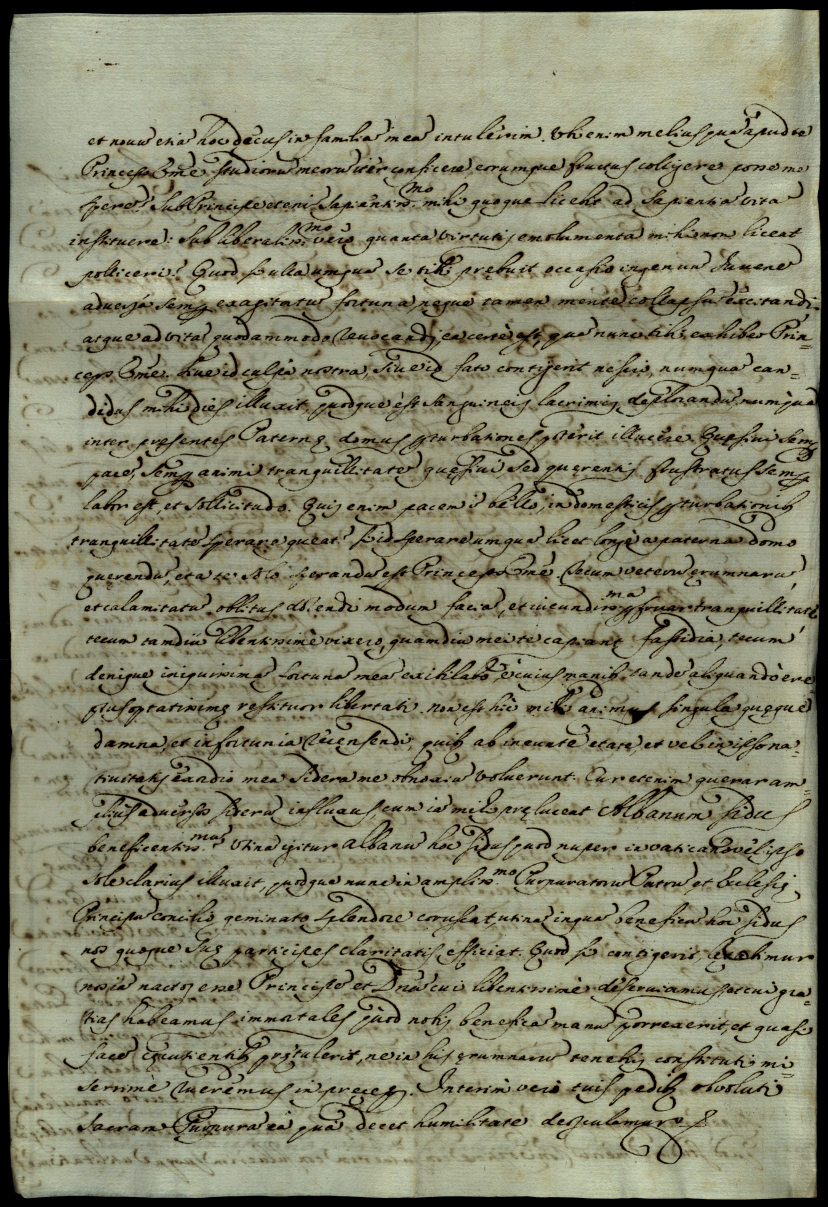 et nouū etiā hoc decus in familiā meā intulerim. Vbi enim melius quā apud te
Princeps Ome studiorū meorū iter conficere, eorumque fructus coligere posse me
sperē? Sub Principe etenī Sapientiss.mo mihi quoque licebit ad Sapientiā vitā
instituere: sub liberaliss.mo verò quanta virtutis emolumenta mihi non liceat
polliceri? Quod si ulla umquā se tibi prębuit occasio ingenuū Iuuenē
aduersa semp exagitatū fortuna, neque tamen mente collapsū excitandi
atque ad vitā quodammodo reuocandi, ea certè est, quā nunc tibi exhibeo Prin-
ceps Ome. Siue id culpa nostra, siue id fato contigerit nescio, numquā can-
didus mihi dies illuxit, quodque est sanguineis lacrimis deplorandū, numquā
inter presentes Paternę domus pturbationes poterit illucere. Quęsiui semp
pacē, semp animi tranquillitatē quęsiui, sed quęrentis frustratus semp
labor est, et sollicitudo. Quis enim pacem ī bello, in domesticis pturbationib
tranquillitatē sperare queat? Id sperare umquā licet longè a paterna domo
querendū, et a te solo sperandū est Princeps Ome. Tecum veterū ęrumnarū,
et calamitatū oblitus dolendi modum faciā, et iucundiss.ma pfruar tranquillitate
tecum tamdiu libentissimè vixero, quamdiu mei te capiant fastidia, tecum
denique iniquissimā fortunā meā exibilabo, è cuius manib. tandē aliquando ere-
ptus optatissimę restituor libertati. non est hic mihi animus singula quęque
damna, et infortunia recensendi, quib ab ineunte etate, et vel in ipso na-
tiuitatis exordio mea sidera me obnoxiū voluerunt. Cur etenim querar am-
plius aduersos siderū influxus, cum iā mihi pręluceat Albanum sidus
beneficentiss.mum? Utinā igitur Albanū hoc sidus quod nuper in vaticano vel ipso
sole clarius illuxit, quodque nunc in ampliss.mo Purpuratorū Patrū et Eclesię
Principū concilio geminato splendore coruscat, utinā inquā beneficū hoc sidus
nos quoque suę participes claritatis efficiat. Quod si contigerit, letabimur
nos iā nactos esse Principē et Dnū cui libentissimè deseruiamus, et cui gra-
tias habeamus immortales, quod nobis beneficā manū porrexerit, et quasi
facē cęcutientib prętulerit, ne in his ęrumnarū tenebris constituti mi-
serrimè rueremus in pręceps. Interim vero tuis pedib obuoluti
sacram Purpurā eā quā decet humilitate deosculamur.